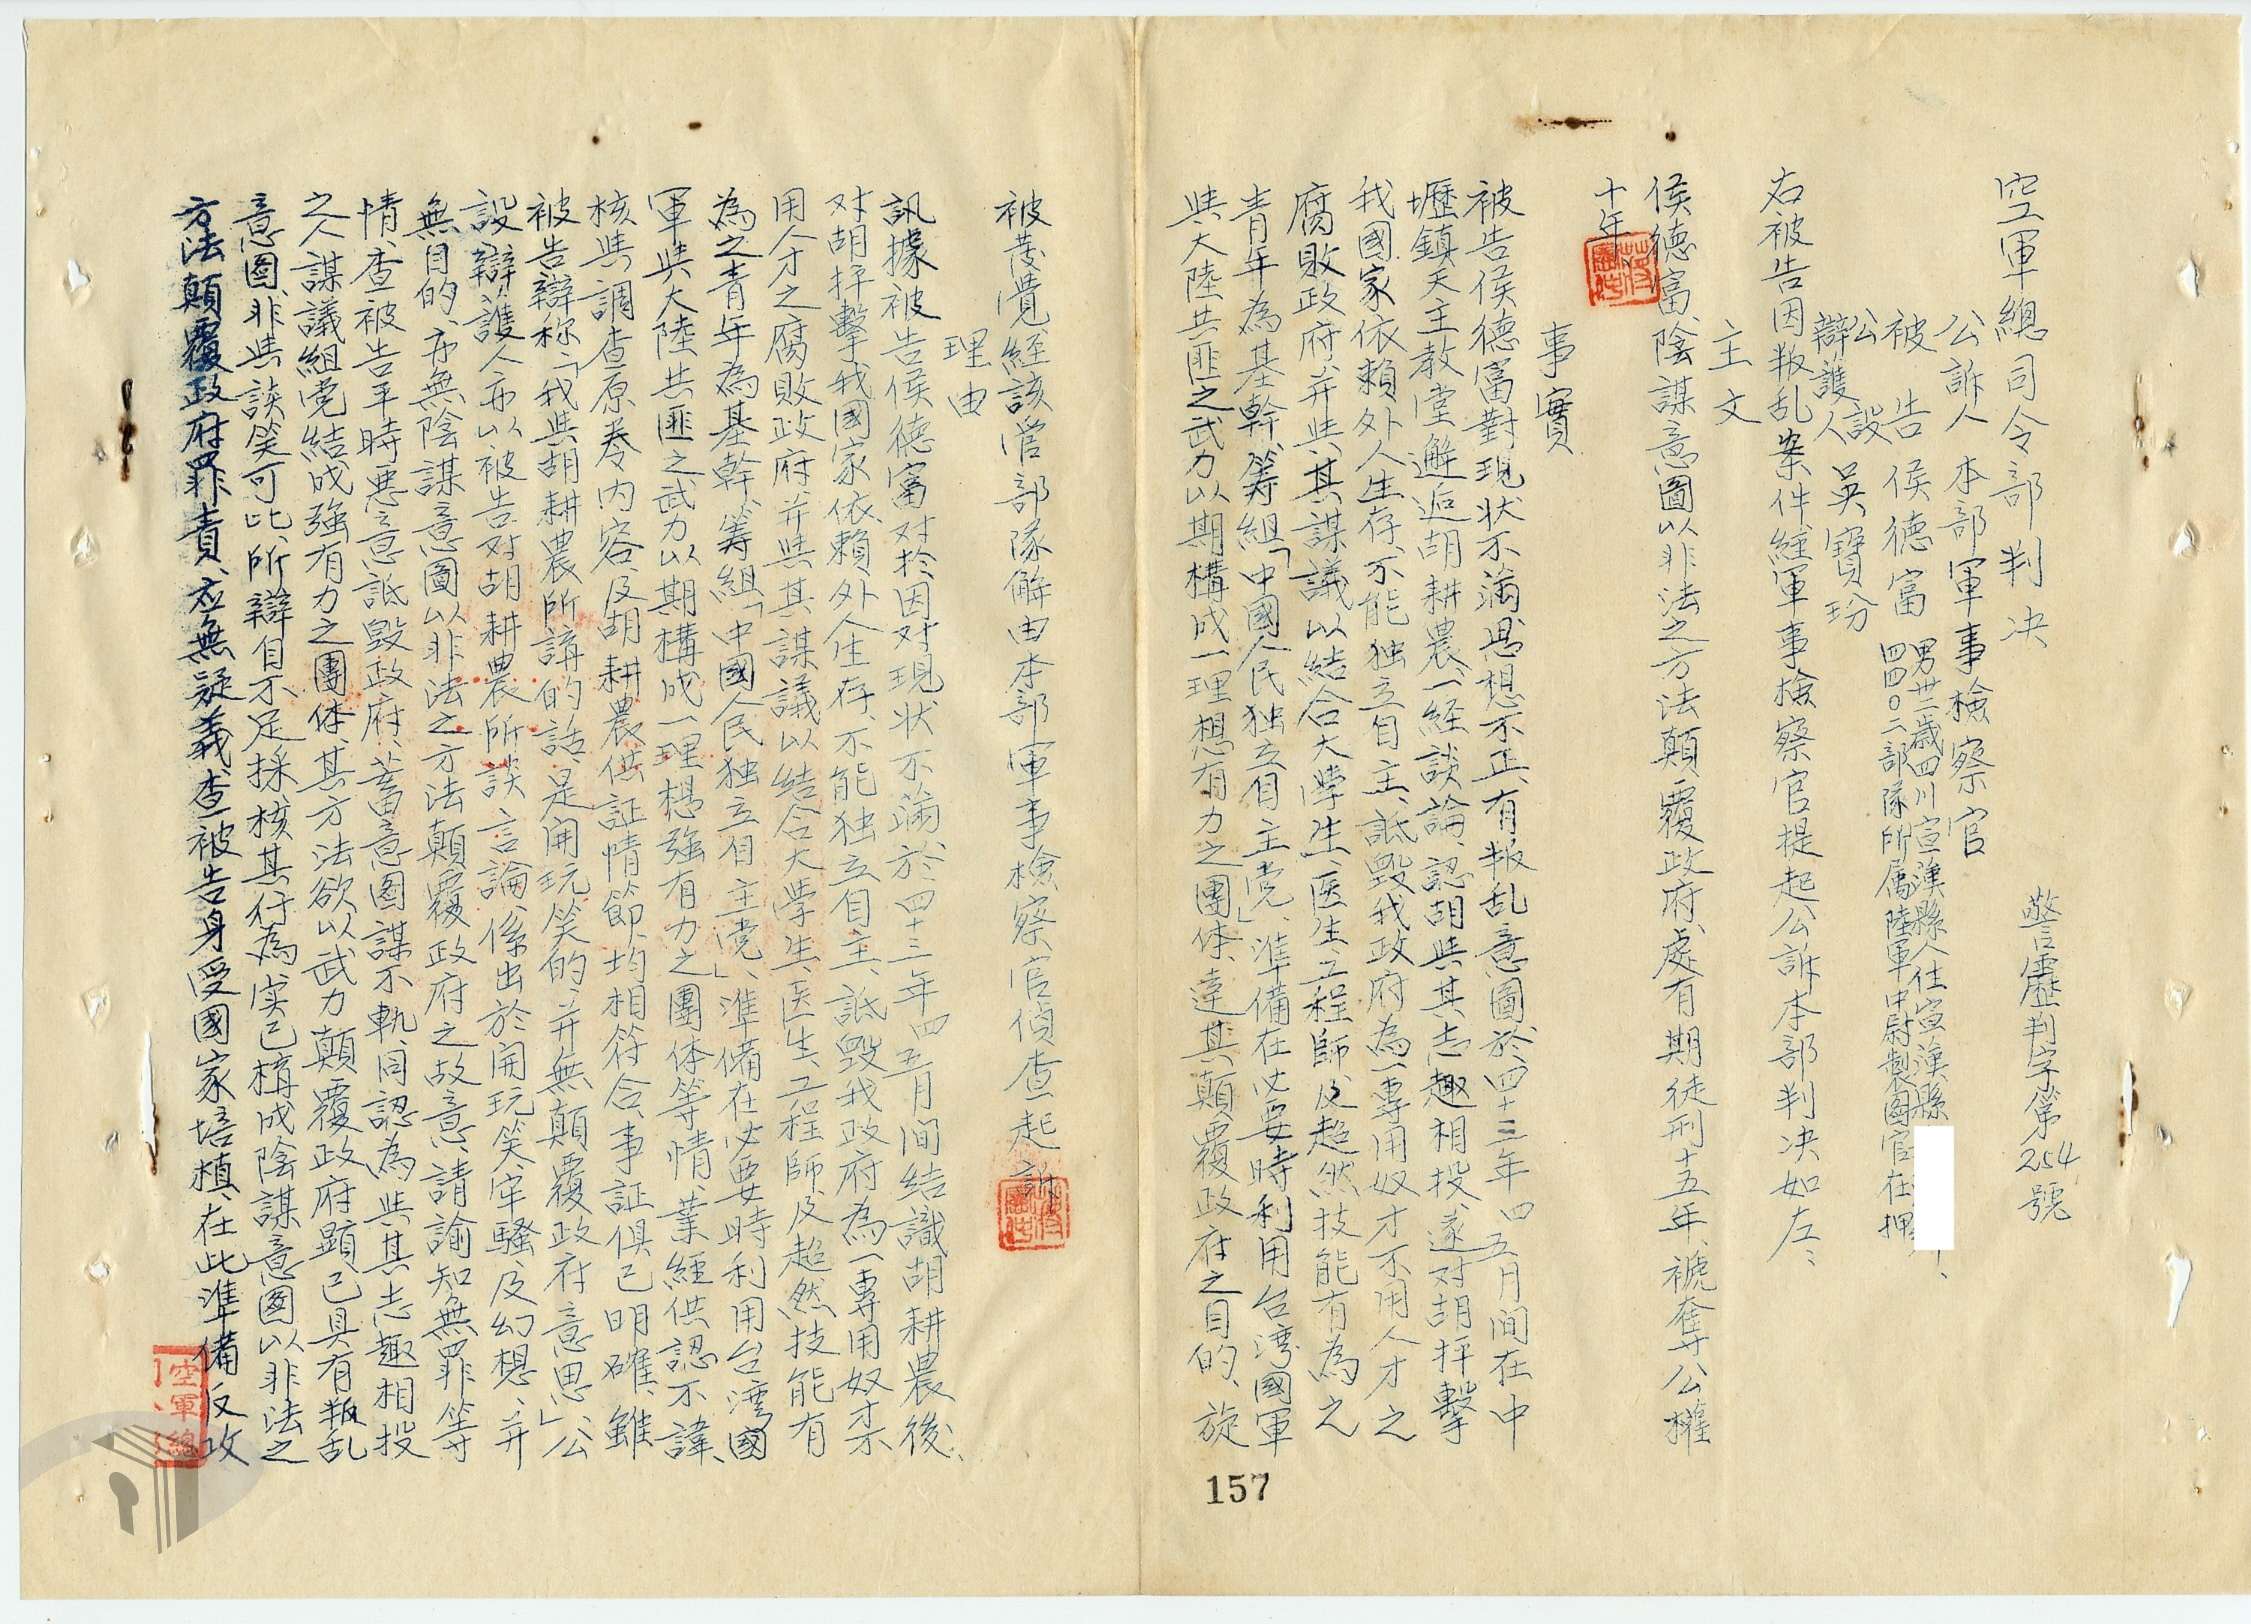 空軍總司令部判決
警靂判字第254號
公訴人 本部軍事檢察官
被告 侯德富 男卅三歲四川宣漢縣人住宣漢縣
四四〇二部隊所屬陸軍中尉製图官在押
公設
辯護人 吳寶玢
右被告因叛乱案件經軍事檢察官提起公訴本部判決如左、
主文
侯德富、陰謀意圖以非法之方法顛覆政府、處有期徒刑十五年、褫奪公權
十年、
事實
被告侯德富對現状不滿思想不正、有叛乱意圖於四十三年四五月间在中
壢鎮天主教堂邂逅胡耕農、一經談論、認胡與其志趣相投、遂对胡抨擊
我國家依賴外人生存、不能独立自主、詆毀我政府為一專用奴才不用人才之
腐敗政府、并與其謀議以結合大學生、医生、工程師及超然技能有為之
青年為基幹、籌組「中國人民独立自主党」、準備在必要時利用台湾國軍
與大陸共匪之武力以期構成一理想有力之團体、達其顛覆政府之目的、旋
157
被發覺經該管部隊解由本部軍事檢察官偵查起訴
理由
訊據被告侯德富对於因对現状不滿、於四十三年四五月间结識胡耕農後、
对胡抨擊我國家依賴外人生存、不能独立自主、詆毀我政府為一專用奴才不
用人才之腐敗政府、并與其謀議以結合大學生、医生、工程師及超然技能有
為之青年為基幹、籌組「中國人民独立自主党」、準備在必要時利用台湾國
軍與大陸共匪之武力以期構成一理想强有力之團体等情、業經供認不諱、
核與調查原卷内容及胡耕農供証情節、均相符合、事証俱已明確、雖
被告辯称「我與胡耕農所講的話、是開玩笑的、并無顛覆政府意思」公
設辯護人亦以被告对胡耕農所談言論、係出於開玩笑、牢騷、及幻想、并
無目的、亦無陰謀意圖以非法之方法顛覆政府之故意、請諭知無罪等
情、查被告平時惡意詆毀政府、蓄意图謀不軌、同認為與其志趣相投
之人謀議組党結成强有力之團体、其方法欲以武力顛覆政府顯已具有叛乱
意圖、非與談笑可比、所辯自不足採、核其行為、实已構成陰謀意圖以非法之
方法顛覆政府罪責、应無疑義、查被告身受國家培植、在此準備反攻
空軍總